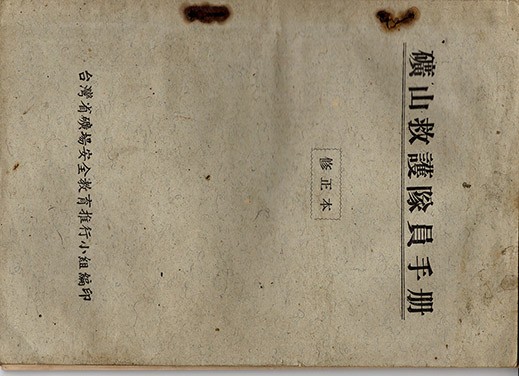 礦山救護隊員手册
修正本
台灣省礦場安全教育推行小組編印